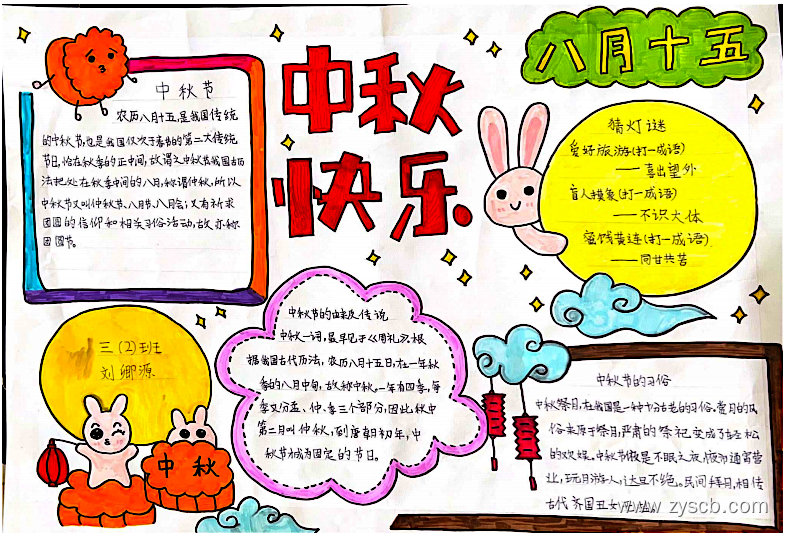 中秋快乐
八月十五
中秋节
农历八月十五,是我国传统
的中秋节,也是我国仅次于春节的第二大传统
节日,恰在秋季的正中间,故谓之中秋我国古历
法把处在秋季中间的八月,称谓仲秋,所以
中秋节又叫仲秋节、八月节、八月会;又有祈求
团圆的信仰和相关习俗活动,故亦称
团圆节。
猜灯谜
爱好旅游(打一成语)
——喜出望外
盲人摸象(打一成语)
——不识大体
蜜饯黄连(打一成语)
——同甘共苦
三(2)班
刘卿源
中秋
中秋节的由来及传说
中秋一词,最早见于《周礼》根
据我国古代历法,农历八月十五日,在一年秋
季的八月中旬,故称中秋,一年有四季,每
季又分孟、仲、季三个部分,因此秋中
第二月叫仲秋,到唐朝初年,中
秋节成为固定的节日。
中秋节的习俗
中秋祭月,在我国是一种十分古老的习俗,赏月的风
俗来源于祭月,严肃的祭祀变成了轻松
的欢娱。中秋节夜是不眠之夜,夜市通宵营
业,玩月游人,达旦不绝。民间拜月,相传
古代齐国丑女
www.zyscb.com